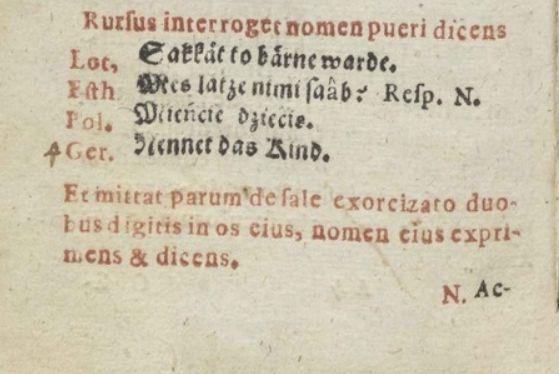 Rursus interroget nomen pueri dicens
Lot, Sakkät to bärne warde.
Esth Mes latze nimi saâb? Resp. N.
Pol. Mieńcie dziecię.
Ger. Nennet das Kind.
Et mittat parum de sale exorcizato duo-
bus digitis in os eius, nomen eius expri-
mens & dicens.
N. Ac-